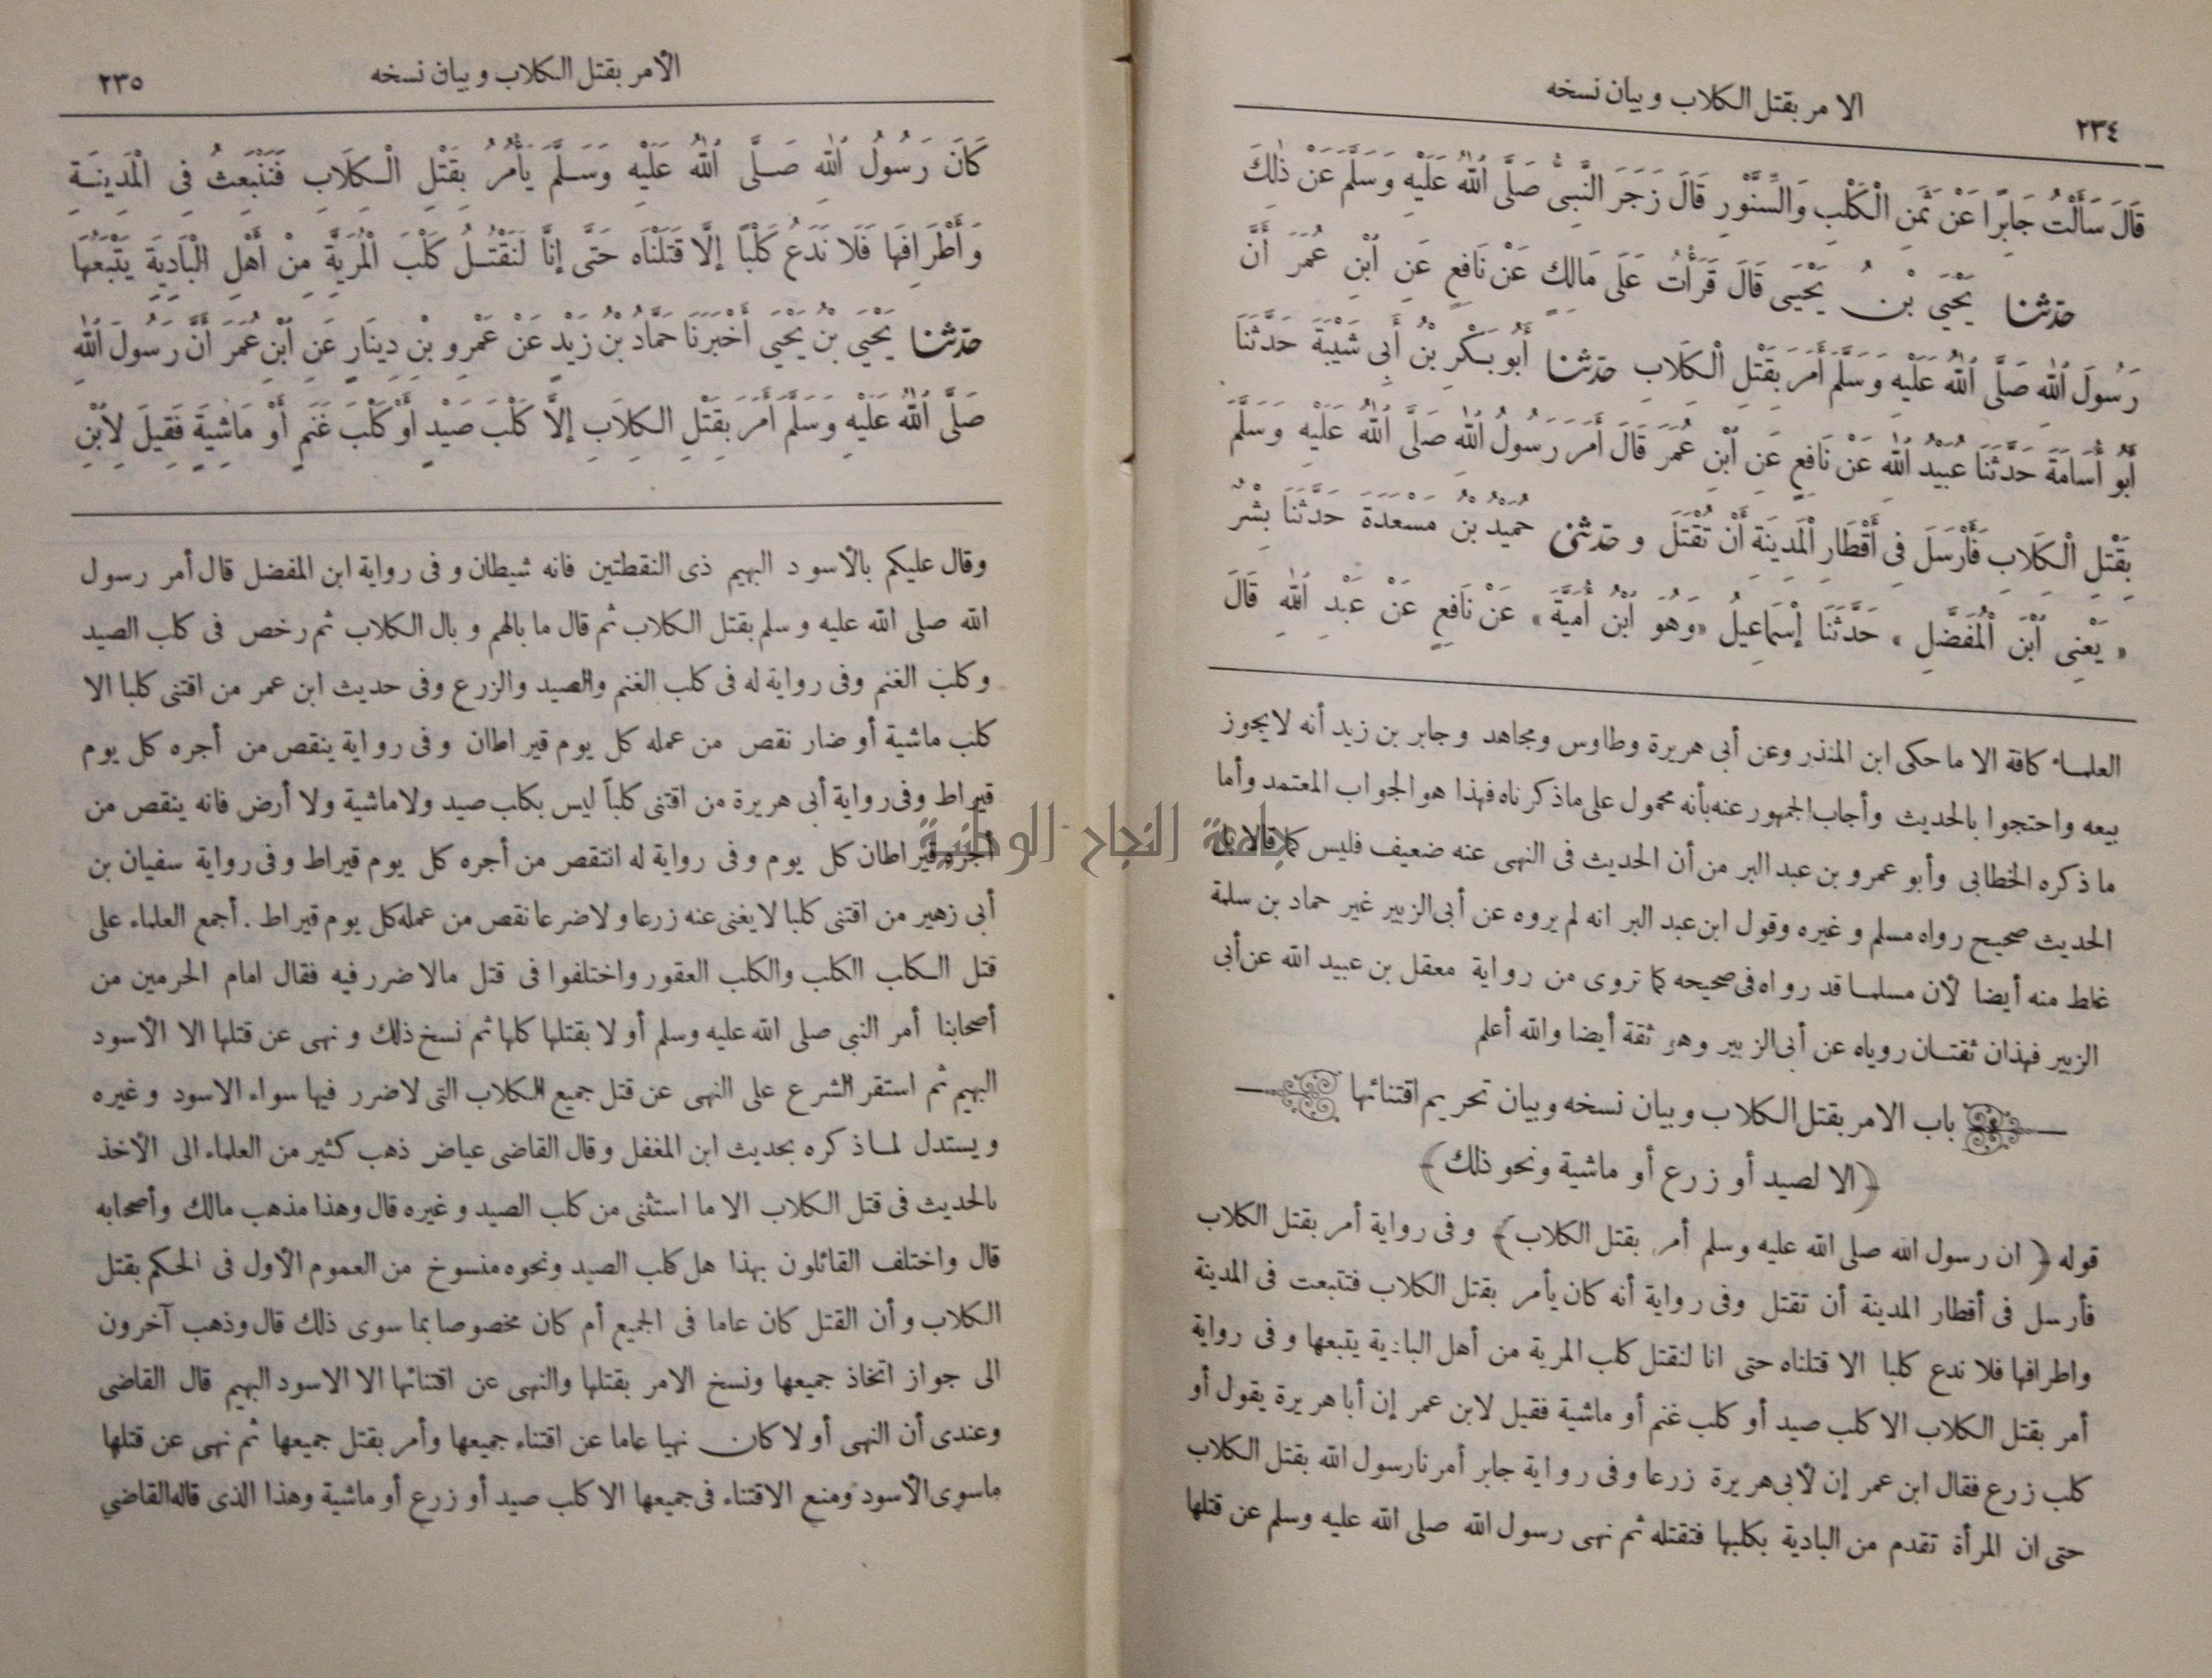 الامر بقتل الكلاب وبيان نسخه
٢٣٤
قَالَ سَأَلْتُ جَابِرًا عَنْ ثَمَنِ الْكَلْبِ وَالسِّنَّوْرِ قَالَ زَجَرَ النَّبِىُّ صَلَّى اللهُ عَلَيْهِ وَسَلَّمَ عَنْ ذٰلِكَ
حدثنا يَحْيَى بْنُ يَحْيَى قَالَ قَرَأْتُ عَلَى مَالِكٍ عَنْ نَافِعٍ عَنِ ابْنِ عُمَرَ أَنَّ
رَسُولَ اللهِ صَلَّى اللهُ عَلَيْهِ وَسَلَّمَ أَمَرَ بِقَتْلِ الْكِلَابِ حدثنا أَبُو بَكْرِ بْنُ أَبِى شَيْبَةَ حَدَّثَنَا
أَبُو أُسَامَةَ حَدَّثَنَا عُبَيْدُ اللهِ عَنْ نَافِعٍ عَنِ ابْنِ عُمَرَ قَالَ أَمَرَ رَسُولُ اللهِ صَلَّى اللهُ عَلَيْهِ وَسَلَّمَ
بِقَتْلِ الْكِلَابِ فَأَرْسَلَ فِى أَقْطَارِ الْمَدِينَةِ أَنْ تُقْتَلَ وحدثنى حُمَيْدُ بْنُ مَسْعَدَةَ حَدَّثَنَا بِشْرٌ
« يَعْنِى ابْنَ الْمُفَضَّلِ » حَدَّثَنَا إِسْمَاعِيلُ «وَهُوَ ابْنُ أُمَيَّةَ» عَنْ نَافِعٍ عَنْ عَبْدِ اللهِ قَالَ
العلماء كافة الا ما حكى ابن المنذر وعن أبى هريرة وطاوس ومجاهد وجابر بن زيد أنه لا يجوز
بيعه واحتجوا بالحديث وأجاب الجمهور عنه بأنه محمول على ما ذكرناه فهذا هو الجواب المعتمد وأما
ما ذكره الخطابى وأبو عمرو بن عبد البر من أن الحديث فى النهى عنه ضعيف فليس كما قالا بل
الحديث صحيح رواه مسلم وغيره وقول ابن عبد البر انه لم يروه عن أبى الزبير غير حماد بن سلمة
غلط منه أيضا لأن مسلما قد رواه فى صحيحه كما تروى من رواية معقل بن عبيد الله عن أبى
الزبير فهذان ثقتان روياه عن أبى الزبير وهو ثقة أيضا والله أعلم
باب الامر بقتل الكلاب وبيان نسخه وبيان تحريم اقتنائها
﴿الا لصيد أو زرع أو ماشية ونحو ذلك﴾
قوله ﴿ ان رسول الله صلى الله عليه وسلم أمر بقتل الكلاب﴾ وفى رواية أمر بقتل الكلاب
فأرسل فى أقطار المدينة أن تقتل وفى رواية أنه كان يأمر بقتل الكلاب فتتبعت فى المدينة
واطرافها فلا ندع كلبا الا قتلناه حتى انا لنقتل كلب المرية من أهل البادية يتبعها وفى رواية
أمر بقتل الكلاب الا كلب صيد أو كلب غنم أو ماشية فقيل لابن عمر إن أبا هريرة يقول أو
كلب زرع فقال ابن عمر إن لأبى هريرة زرعا وفى رواية جابر أمرنا رسول الله بقتل الكلاب
حتى ان المرأة تقدم من البادية بكلبها فتقتله ثم نهى رسول الله صلى الله عليه وسلم عن قتلها
الأمر بقتل الكلاب وبيان نسخه
٢٣٥
كَانَ رَسُولُ اللهِ صَلَّى اللهُ عَلَيْهِ وَسَلَّمَ يَأْمُرُ بِقَتْلِ الْكِلَابِ فَنَنْبَعِثُ فِى الْمَدِينَةِ
وَأَطْرَافِهَا فَلَا نَدَعُ كَلْبًا إِلَّا قَتَلْنَاه حَتَّى إِنَّا لَنَقْتُلُ كَلْبَ الْمُرَيَّةِ مِنْ أَهْلِ الْبَادِيَةِ يَتْبَعُهَا
حدثنا يَحْيَى بْنُ يَحْيَى أَخْبَرَنَا حَمَّادُ بْنُ زَيْدٍ عَنْ عَمْرِو بْنِ دِينَارٍ عَنِ ابْنِ عُمَرَ أَنَّ رَسُولَ اللهِ
صَلَّى اللهُ عَلَيْهِ وَسَلَّمَ أَمَرَ بِقَتْلِ الكِلَابِ إِلَّا كَلْبَ صَيْدٍ أَوْ كَلْبَ غَنَمٍ أَوْ مَاشِيَةٍ فَقِيلَ لِابْنِ
وقال عليكم بالأسود البهيم ذى النقطتين فانه شيطان وفى رواية ابن المفضل قال أمر رسول
الله صلى الله عليه وسلم بقتل الكلاب ثم قال ما بالهم وبال الكلاب ثم رخص فى كلب الصيد
وكلب الغنم وفى رواية له فى كلب الغنم والصيد والزرع وفى حديث ابن عمر من اقتنى كلبا الا
كلب ماشية أو ضار نقص من عمله كل يوم قيراطان وفى رواية ينقص من أجره كل يوم
قيراط وفى رواية أبى هريرة من اقتنى كلباً ليس بكلب صيد ولا ماشية ولا أرض فانه ينقص من
أجره قيراطان كل يوم وفى رواية له انتقص من أجره كل يوم قيراط وفى رواية سفيان بن
أبى زهير من اقتنى كلبا لا يغنى عنه زرعا ولا ضرعا نقص من عمله كل يوم قيراط . أجمع العلماء على
قتل الكلب الكلب والكلب العقور واختلفوا فى قتل مالا ضرر فيه فقال امام الحرمين من
أصحابنا أمر النبى صلى الله عليه وسلم أولا بقتلها كلها ثم نسخ ذلك ونهى عن قتلها الا الأسود
البهيم ثم استقر الشرع على النهى عن قتل جميع الكلاب التى لا ضرر فيها سواء الاسود وغيره
ويستدل لما ذكره بحديث ابن المغفل وقال القاضى عياض ذهب كثير من العلماء الى الأخذ
بالحديث فى قتل الكلاب الا ما استثنى من كلب الصيد وغيره قال وهذا مذهب مالك وأصحابه
قال واختلف القائلون بهذا هل كلب الصيد ونحوه منسوخ من العموم الأول فى الحكم بقتل
الكلاب وأن القتل كان عاما فى الجميع أم كان مخصوصا بما سوى ذلك قال وذهب آخرون
الى جواز اتخاذ جميعها ونسخ الامر بقتلها والنهى عن اقتنائها الا الاسود البهيم قال القاضى
وعندى أن النهى أولا كان نهيا عاما عن اقتناء جميعها وأمر بقتل جميعها ثم نهى عن قتلها
ماسوى الأسود ومنع الاقتناء فى جميعها الا كلب صيد أو زرع أو ماشية وهذا الذى قاله القاضى
جامعة النجاح الوطنية